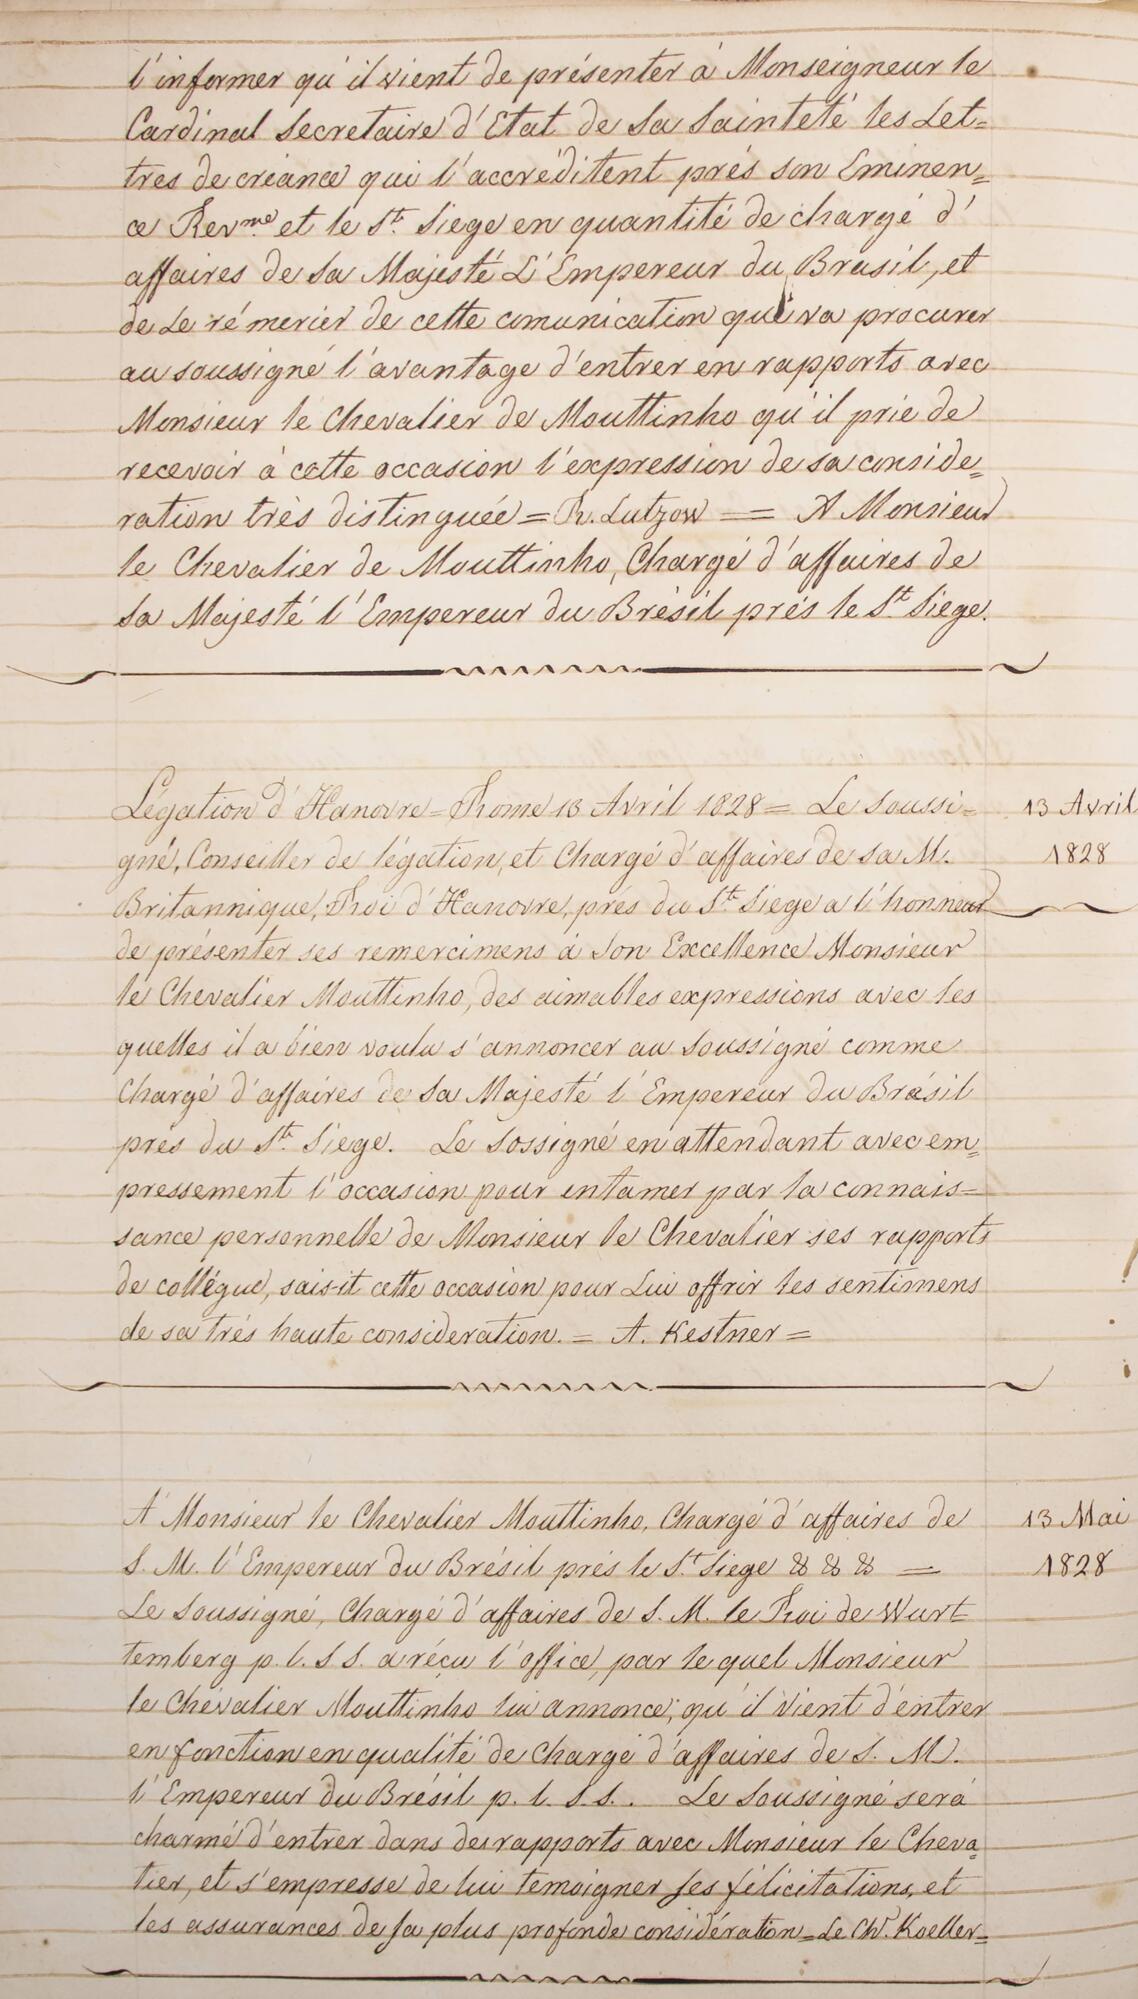 l'informer qu'il vient de présenter à Monseigneur le
Cardinal Secretaire d'Etat de Sa Sainteté les Let=
tres de créance qui l'accréditent prés son Eminen=
ce Revme et le St. Siege en quantité de chargé d'
affaires de Sa Majesté L'Empereur du Brasil, et
de Le rémerier de cette comunication qui va procurer
au soussigné l'avantage d'entrer en rapports avec
Monsieur le Chevalier de Mouttinho qu'il prie de
recevoir à cette occasion l'expression de sa conside=
ration très distinguée = R. Lutzow == A Monsieur
le Chevalier de Mouttinho, Chargé d'affaires de
Sa Majesté l'Empereur du Brésil prés le St. Siege.
Légation d'Hanovre = Rome 13 Avril 1828 = Le Soussi=
13 Avril
gné, Conseiller de légation, et Chargé d'affaires de Sa M.
1828
Britannique, Roi d'Hanovre, prés du St. Siege a l'honneur
de présenter ses remercimens à Son Excellence Monsieur
le Chevalier Mouttinho, des aimables expressions avec les
quelles il a bien voulu s'annoncer au Soussigné comme
Chargé d'affaires de Sa Majesté l'Empereur du Brasil
pres du St. Siege. Le Sossigné en attendant avec em=
pressement l'occasion pour entamer par la connais=
sance personnelle de Monsieur le Chevalier ses rapports
de collégue, saisit cette occasion pour Lui offrir les sentimens
de sa trés haute consideration. = A. Kestner =
A Monsieur le Chevalier Mouttinho, Chargé d'affaires de
13 Mai
S. M. l'Empereur du Brésil prés le St. Siege & & & =
1828
Le Soussigné, Chargé d'affaires de S. M. le Roi de Wurt
temberg p. l. S. S. a réçu l'office, par le quel Monsieur
le Chevalier Mouttinho lui annonce, qu'il vient d'entrer
en fonction en qualité de Chargé d'affaires de S. M.
l'Empereur du Brésil p. l. S. S.. Le Soussigné será
charmé d'entrer dans des rapports avec Monsieur le Cheva=
lier, et s'empresse de lui temoigner ses félicitations, et
les assurances de sa plus profonde considération = Le Chr. Koeller =